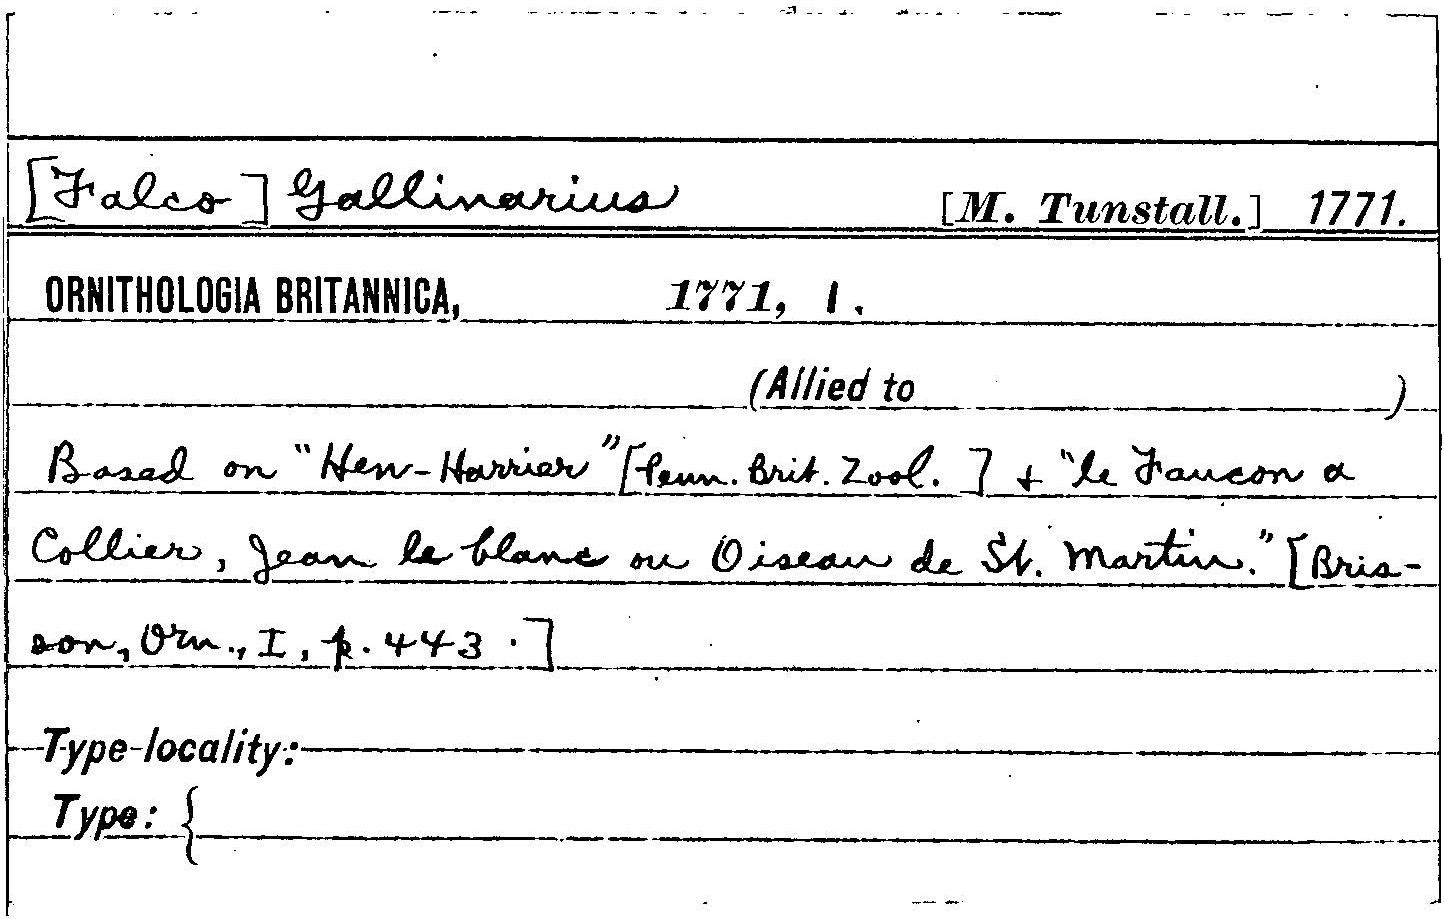 [Falco] Gallinarius [M. Tunstall.] 1771.
ORNITHOLOGIA BRITANNICA, 1771, 1.
(Allied to )
Based on "Hen-Harrier" [Penn. Brit. Zool. ] + "le Faucon a
Collier, Jean le blanc ou Oiseau de St. Martin." [Bris-
son, Orn., I, p. 443.]
Type locality:
Type: {